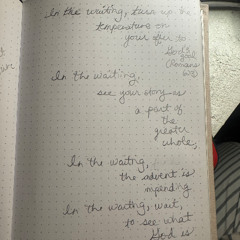 In the waiting, turn up the
temperature on
your offer to
God's
goal
(Romans
In the waiting,
see your story as
a part of
the
greater
whole,
In the waitng,
the advent is
impending
In the waiting, wait,
to see what
God is